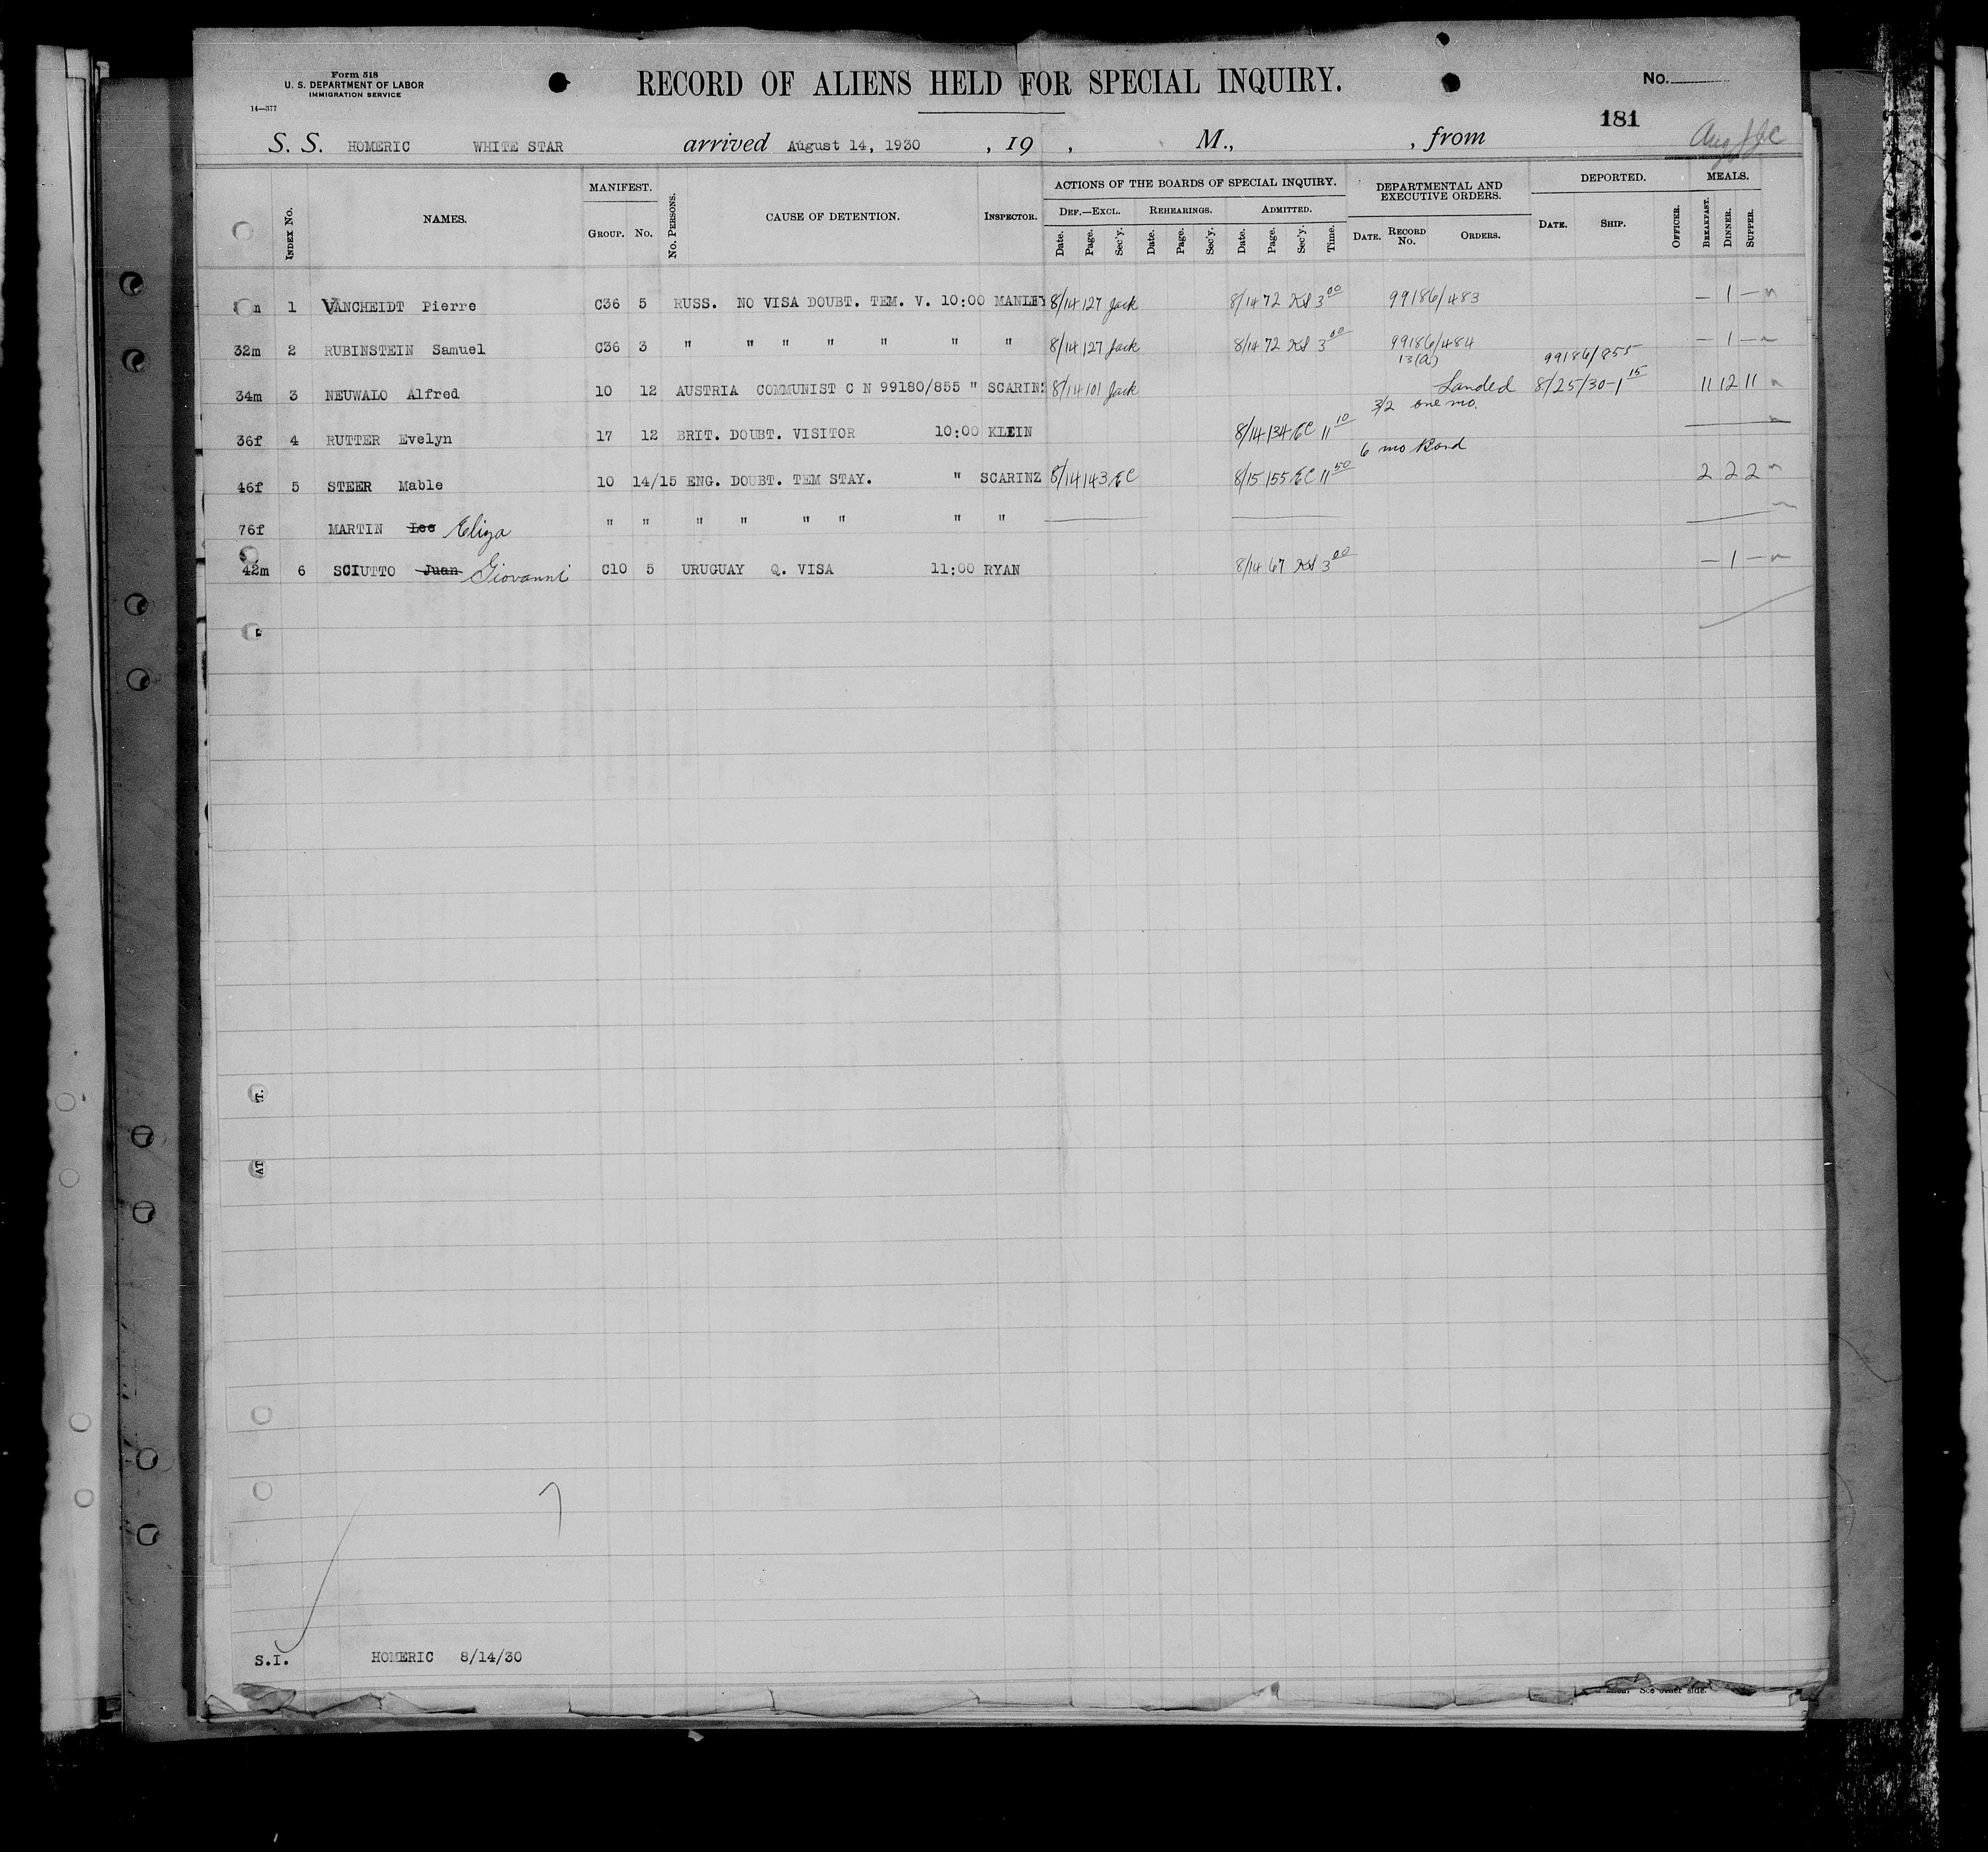 Form 518
U. S. DEPARTMENT OF LABOR
IMMIGRATION SERVICE
14—377
RECORD OF ALIENS HELD FOR SPECIAL INQUIRY.
No.
181
S. S. HOMERIC WHITE STAR arrived August 14, 1930 , 19 , M., , from
INDEX No. NAMES. MANIFEST. GROUP. No. No. PERSONS. CAUSE OF DETENTION. INSPECTOR. ACTIONS OF THE BOARDS OF SPECIAL INQUIRY. DEF.—EXCL. Date. Page. Sec'y. REHEARINGS. Date. Page. Sec'y. ADMITTED. Date. Page. Sec'y. Time. DEPARTMENTAL AND EXECUTIVE ORDERS. DATE. RECORD No. ORDERS. DEPORTED. DATE. SHIP. OFFICER. MEALS. BREAKFAST. DINNER. SUPPER.
m 1 VANCHEIDT Pierre C36 5 RUSS. NO VISA DOUBT. TEM. V. 10:00 MANLEY 8/14 127 Jack 8/14 72 3 00 99186/483 — 1 —
32m 2 RUBINSTEIN Samuel C36 3 " " " " " " " 8/14 127 Jack 8/14 72 3 00 99186/484 — 1 —
13(a) 99186/855
34m 3 NEUWALO Alfred 10 12 AUSTRIA COMMUNIST C N 99180/855 " SCARINZ 8/14 101 Jack Landed 8/25/30-1 15 11 12 11
3/2 one mo.
36f 4 RUTTER Evelyn 17 12 BRIT. DOUBT. VISITOR 10:00 KLEIN 8/14 134 EC 11 10
6 mo Bond
46f 5 STEER Mable 10 14/15 ENG. DOUBT. TEM STAY. " SCARINZ 8/14 143 EC 8/15 155 EC 11 50 2 2 2
76f MARTIN Lee Eliza " " " " " " " "
42m 6 SCIUTTO Juan Giovanni C10 5 URUGUAY Q. VISA 11:00 RYAN 8/14 67 3 00 — 1 —
T.
AT
S.I. HOMERIC 8/14/30
See other side.